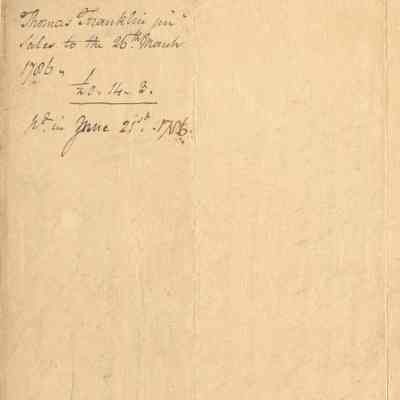 Thomas Franklin junr
Sales to the 26th March
1786
14 - 3.
in June 21st 1786.